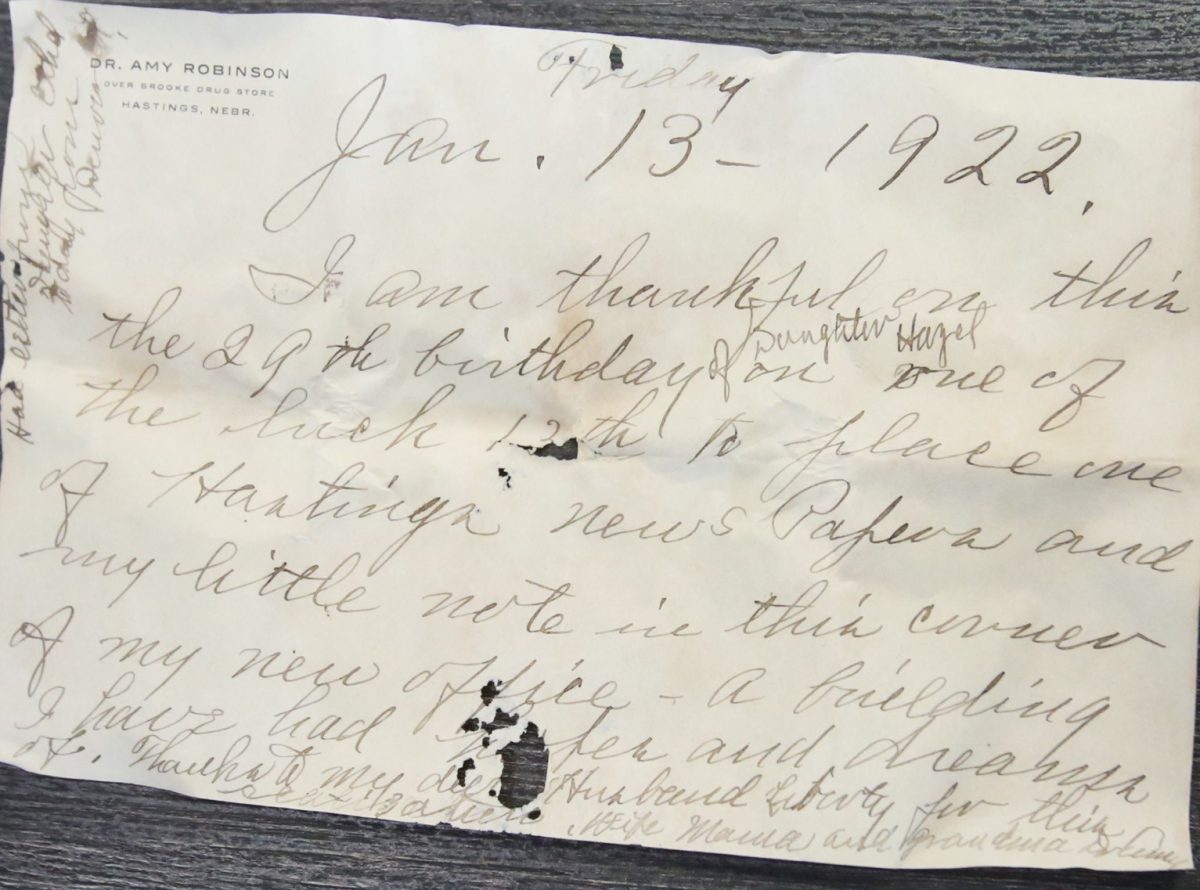 DR. AMY ROBINSON
OVER BROOKE DRUG STORE
HASTINGS, NEBR.
Friday
Jan. 13 - 1922.
I am thankful on this
the 29th birthday of Daughter Hazel on one of
the luck 13th to place one
of Hastings news Papers and
my little note in this corner
of my new office - a building
I have had hopes and dreams
of. Thanks to my dear Husband for this
Wife Mama and grandma